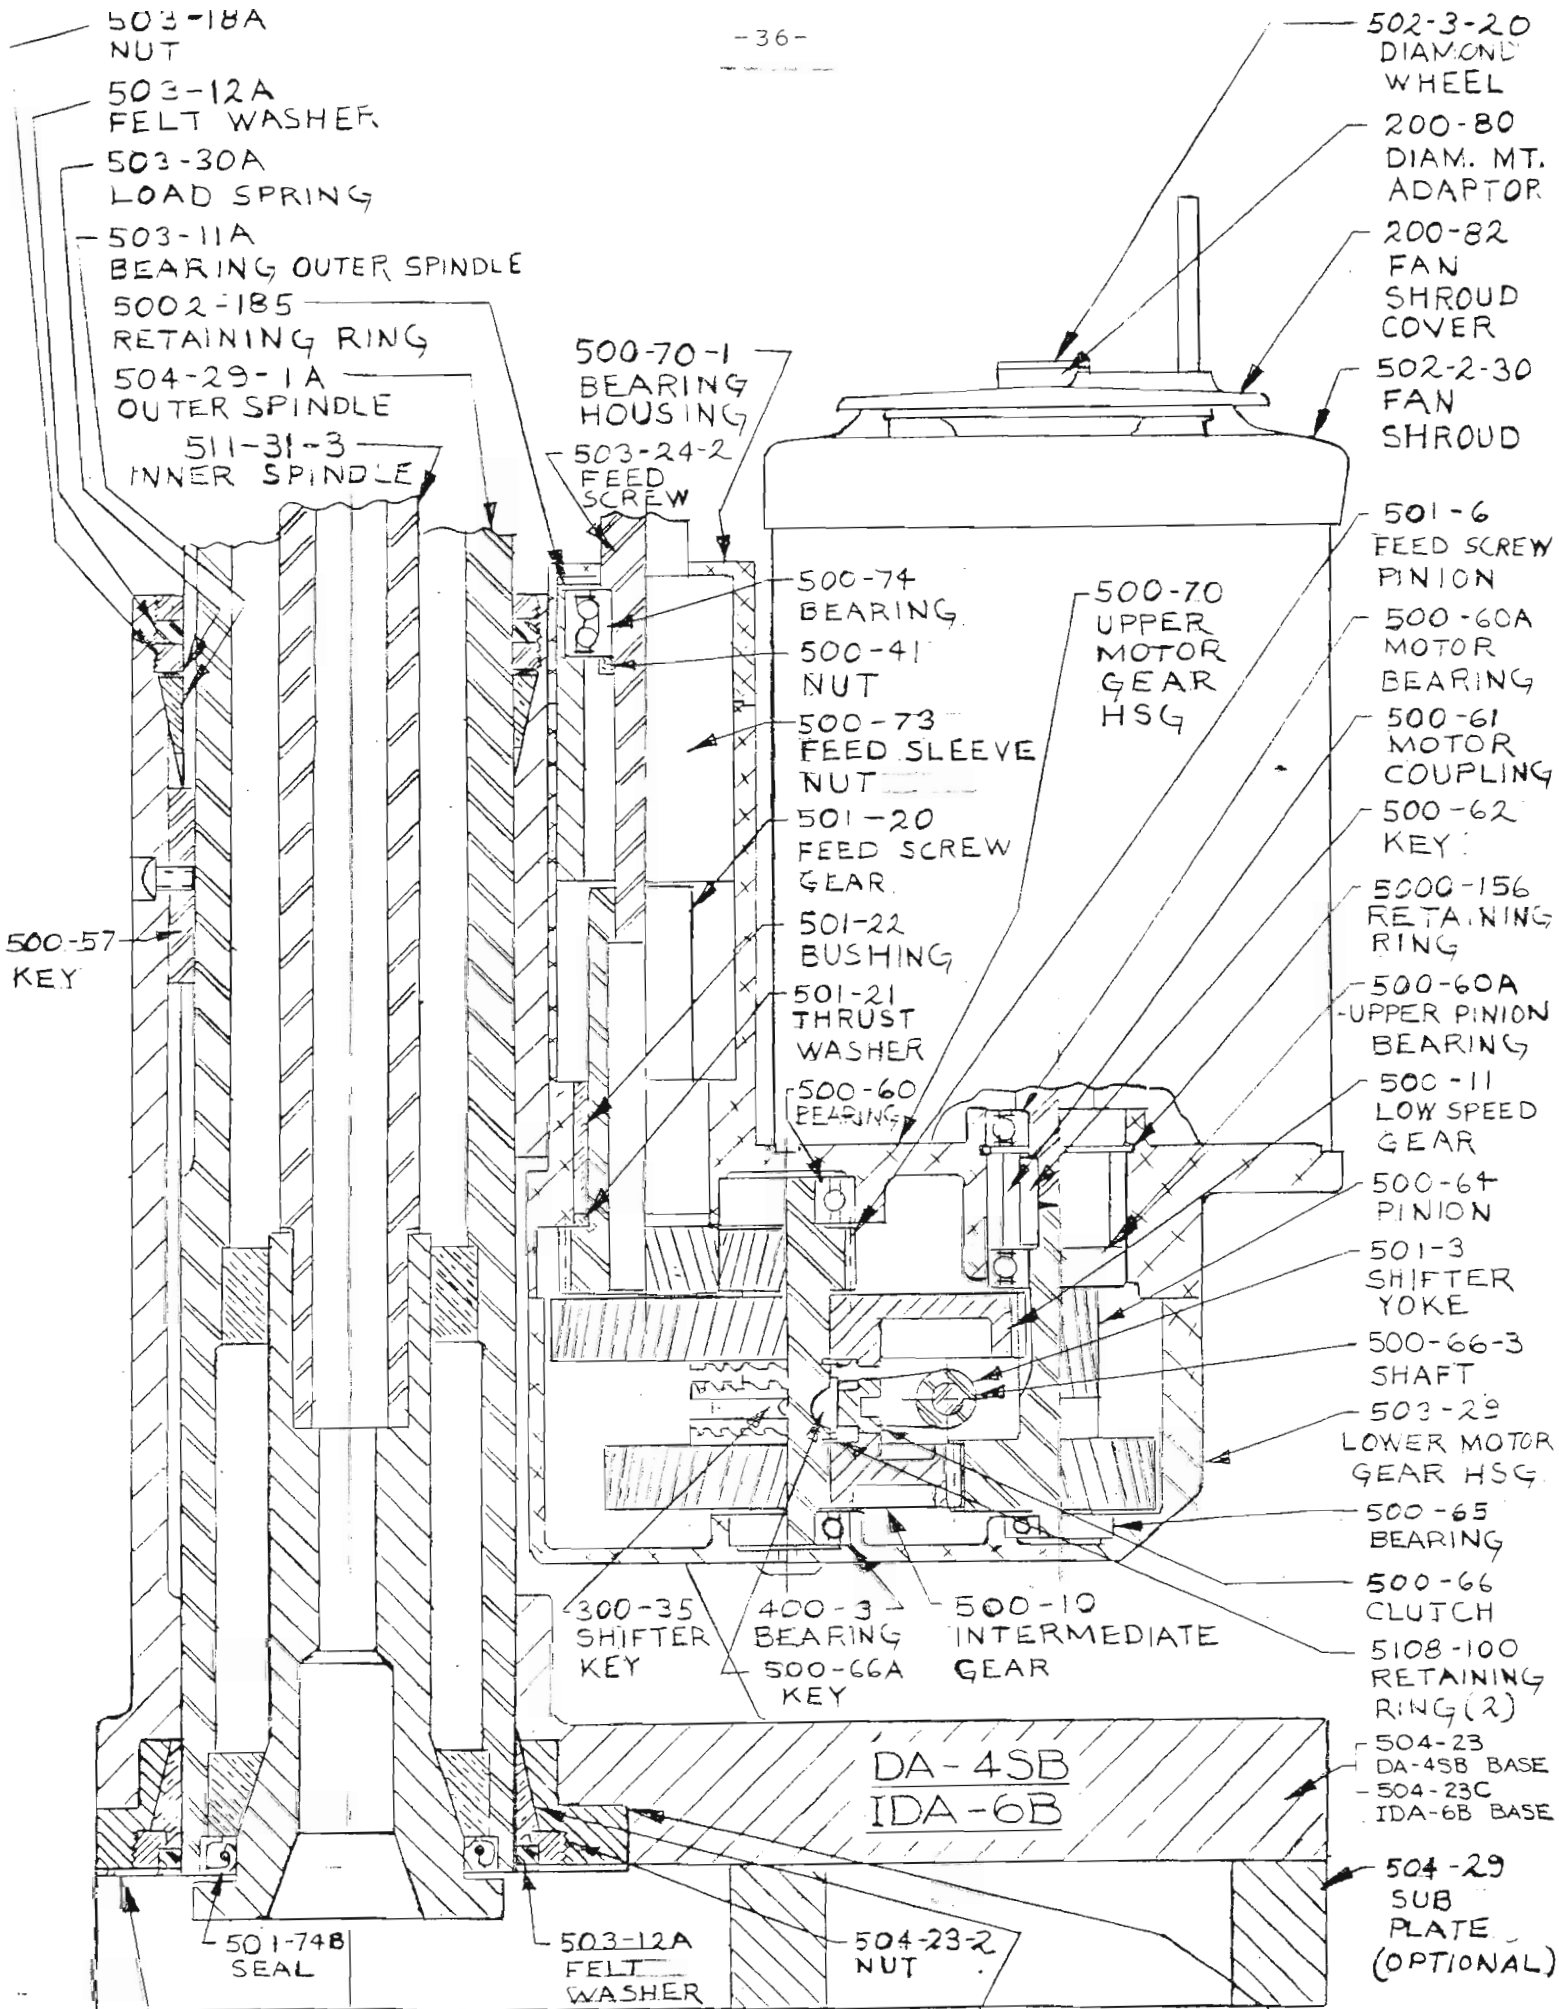 -36-
503-18A
NUT
503-12A
FELT WASHER
503-30A
LOAD SPRING
503-11A
BEARING OUTER SPINDLE
5002-185
RETAINING RING
504-29-1A
OUTER SPINDLE
511-31-3
INNER SPINDLE
500-57
KEY
500-70-1
BEARING
HOUSING
503-24-2
FEED
SCREW
500-74
BEARING
500-41
NUT
500-73
FEED SLEEVE
NUT
501-20
FEED SCREW
GEAR
501-22
BUSHING
501-21
THRUST
WASHER
500-60
BEARING
500-70
UPPER
MOTOR
GEAR
HSG
502-3-20
DIAMOND
WHEEL
200-80
DIAM. MT.
ADAPTOR
200-82
FAN
SHROUD
COVER
502-2-30
FAN
SHROUD
501-6
FEED SCREW
PINION
500-60A
MOTOR
BEARING
500-61
MOTOR
COUPLING
500-62
KEY
5000-156
RETAINING
RING
500-60A
UPPER PINION
BEARING
500-11
LOW SPEED
GEAR
500-64
PINION
501-3
SHIFTER
YOKE
500-66-3
SHAFT
503-29
LOWER MOTOR
GEAR HSG.
500-65
BEARING
500-66
CLUTCH
5108-100
RETAINING
RING (2)
504-23
DA-4SB BASE
504-23C
IDA-6B BASE
504-29
SUB
PLATE
(OPTIONAL)
300-35
SHIFTER
KEY
400-3
BEARING
500-66A
KEY
500-10
INTERMEDIATE
GEAR
DA-4SB
IDA-6B
501-74B
SEAL
503-12A
FELT
WASHER
504-23-2
NUT